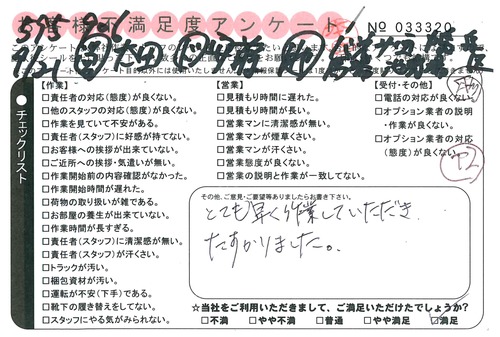 お客様不満足度アンケート
No 033320
チェックリスト
【作業】
□責任者の対応(態度)が良くない。
□他のスタッフの対応(態度)が良くない。
□作業を見ていて不安がある。
□責任者(スタッフ)に好感が持てない。
□お客様への挨拶が出来ていない。
□ご近所への挨拶・気遣いが無い。
□作業開始前の内容確認がなかった。
□作業開始時間が遅れた。
□荷物の取り扱いが雑である。
□お部屋の養生が出来ていない。
□作業時間が長すぎる。
□責任者(スタッフ)に清潔感が無い。
□責任者(スタッフ)が汗くさい。
□トラックが汚い。
□梱包資材が汚い。
□運転が不安(下手)である。
□靴下の履き替えをしてない。
□スタッフにやる気がみられない。
【営業】
□見積もり時間に遅れた。
□見積もり時間が長い。
□営業マンに清潔感が無い。
□営業マンが煙草くさい。
□営業マンが汗くさい。
□営業態度が良くない。
□営業の説明と作業が一致してない。
【受付・その他】
□電話の対応が良くない。
□オプション業者の説明・作業が良くない。
□オプション業者の対応(態度)が良くない。
その他、ご意見・ご要望等ありましたらお書き下さい。
とても早く作業していただき
たすかりました。
☆当社をご利用いただきまして、ご満足いただけたでしょうか?
□不満 □やや不満 □普通 □やや満足 ☑満足